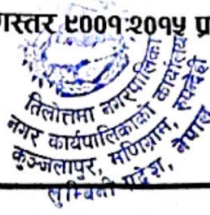 गस्तर ९००१:२०१५ प्र
तिलोत्तमा नगरपालिका
नगर कार्यपालिकाको कार्यालय
कुञ्जलापुर, मणिग्राम, रुपन्देही
लुम्बिनी प्रदेश, नेपाल